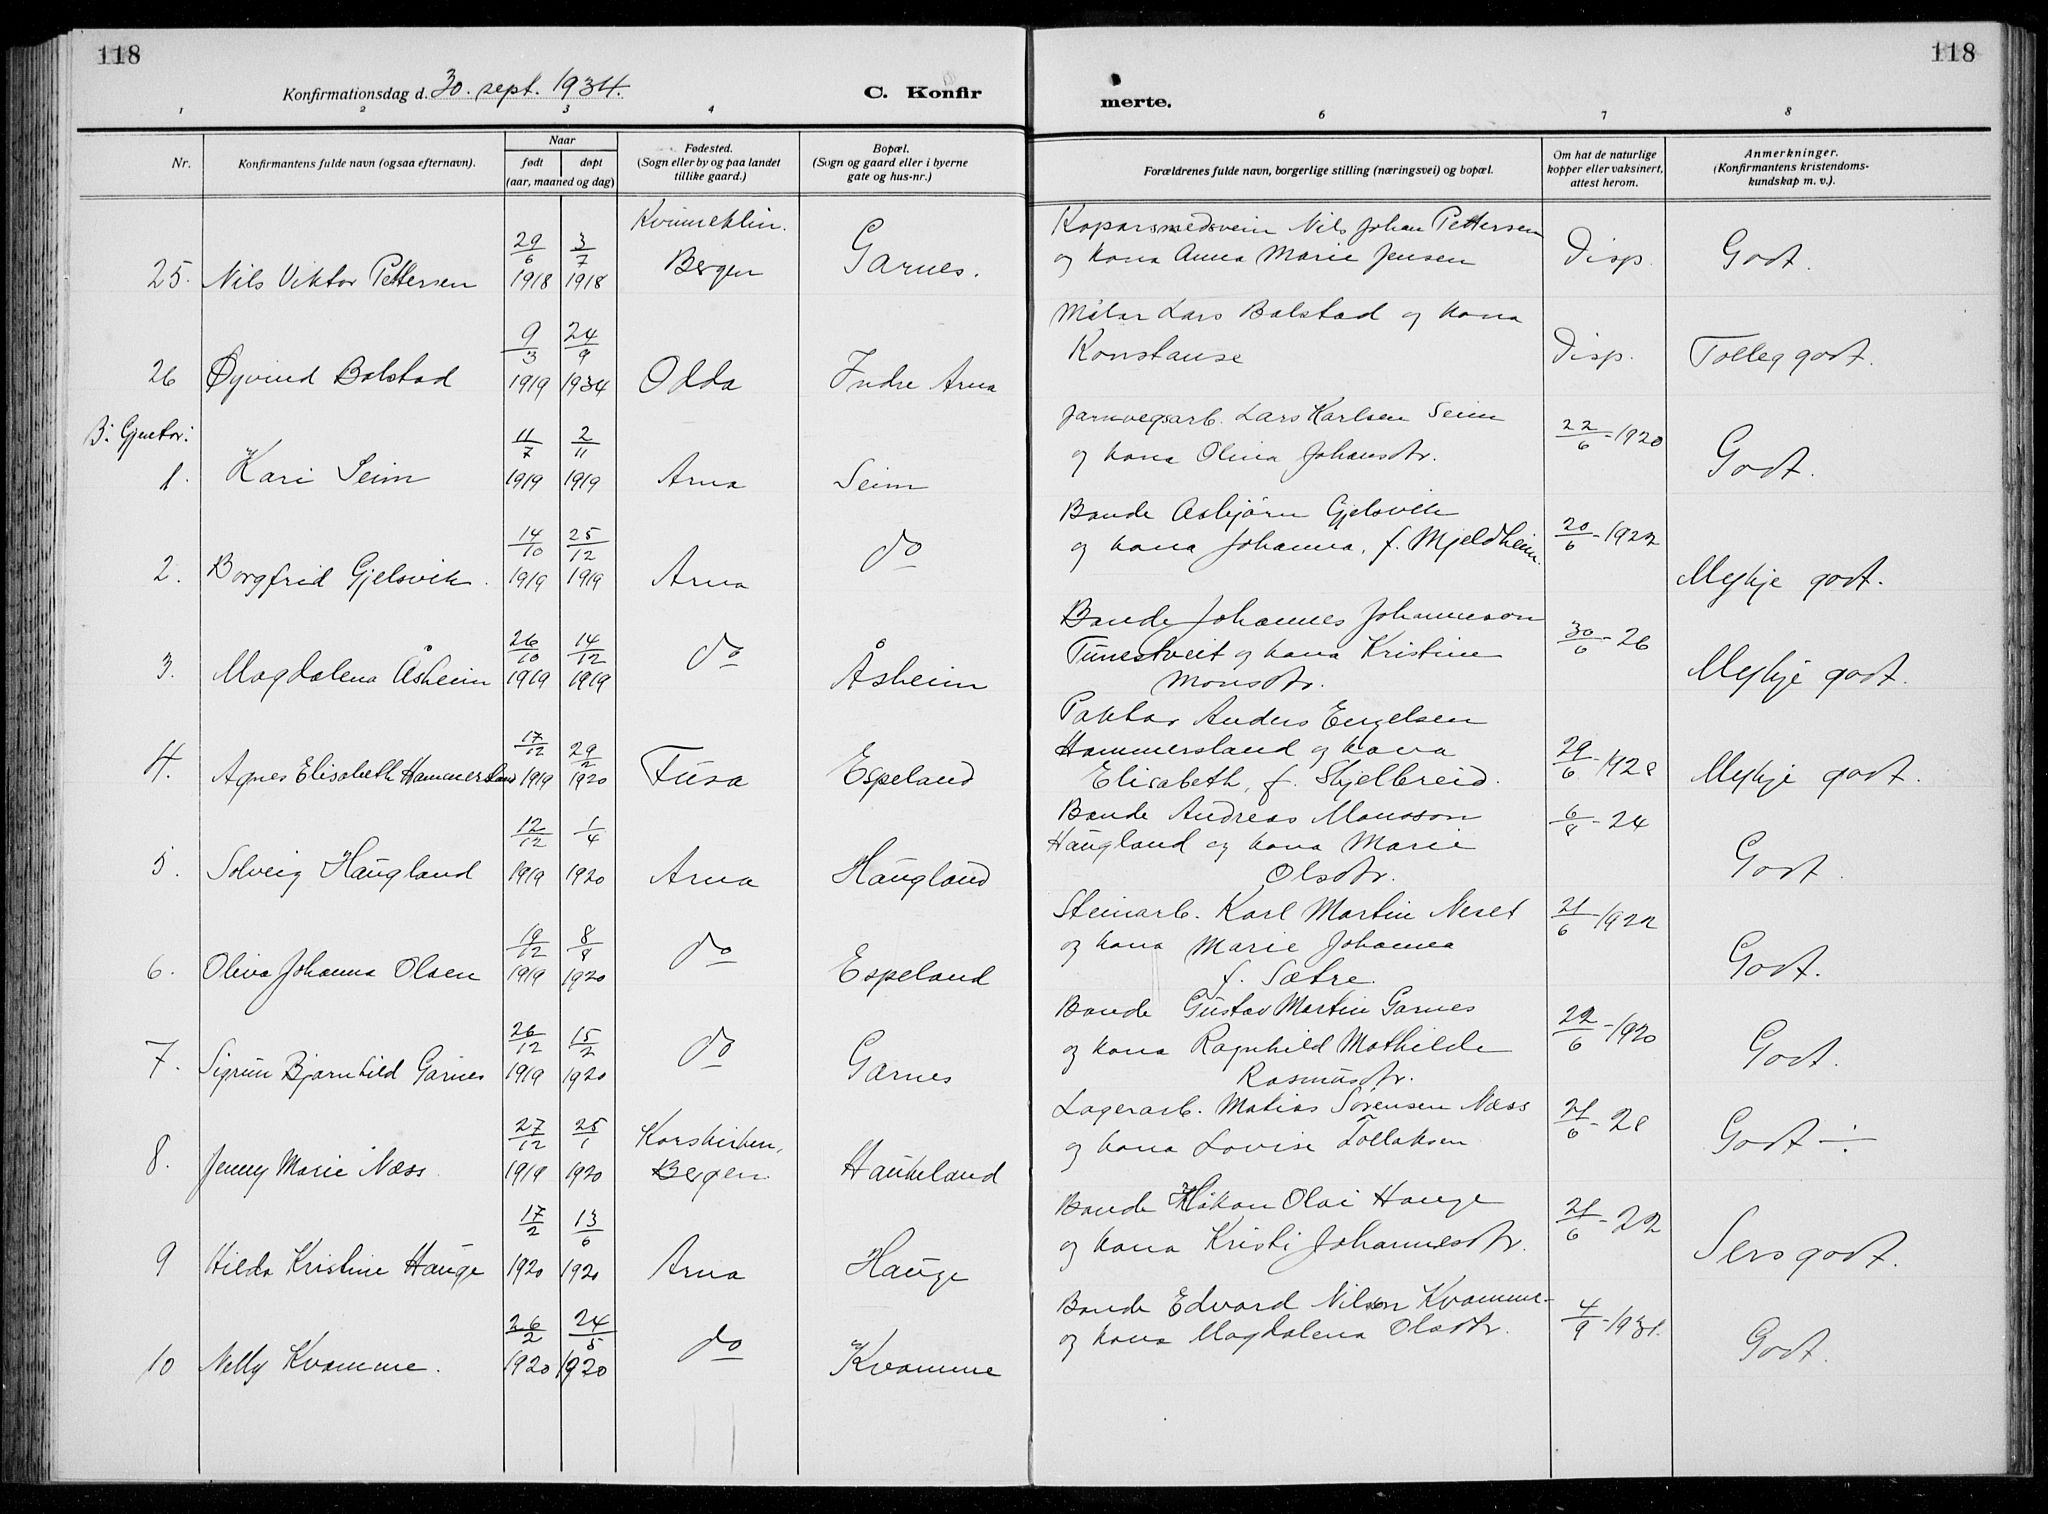 118
118
Konfirmationsdag d. 30. sept. 1934.
C. Konfir
merte.
1 2 3 4 6 7 8
Nr.
Konfirmantens fulde navn (ogsaa efternavn).
Naar
født
døpt
(aar, maaned og dag)
Fødested.
(Sogn eller by og paa landet
tillike gaard.)
Bopæl.
(Sogn og gaard eller i byerne
gate og hus-nr.)
Forældrenes fulde navn, borgerlige stilling (næringsvei) og bopæl.
Om hat de naturlige
kopper eller vaksinert,
attest herom.
Anmerkninger.
(Konfirmantens kristendoms-
kundskap m. v.).
25. Nils Viktor Pettersen 29/6 1918 3/7 1918 Kvinneklin. Bergen Garnes.
Koparsmedsvein Nils Johan Pettersen
og kona Anna Marie Jensen
Disp. Godt.
26 Øyvind Bolstad 9/3 1919 24/9 1934 Odda Indre Arna
Målar Lars Bolstad og kona
Konstanse
Disp. Tolleg godt.
B. Gjentor:
1. Kari Seim 11/7 1919 2/11 1919 Arna Seim
Jarnvegsarb. Lars Karlsen Seim
og kona Olina Johansdtr.
22/6 - 1920 Godt.
2. Borgfrid Gjelsvik. 14/10 1919 25/12 1919 Arna do
Bonde Asbjørn Gjelsvik
og kona Johanna, f. Mjeldheim.
20/6 - 1922 Mykje godt.
3. Magdalena Åsheim 26/10 1919 14/12 1919 do Åsheim
Bonde Johannes Johanneson
Tunestveit og kona Kristine
Monsdtr.
30/6 - 26 Mykje godt.
4. Agnes Elisabeth Hammersland 17/12 1919 29/2 1920 Fusa Espeland
Paktar Anders Engelsen
Hammersland og kona
Elisabeth, f. Skjelbreid.
29/6 - 1928 Mykje godt.
5. Solveig Haugland 12/12 1919 1/4 1920 Arna Haugland
Bonde Andreas Monsson
Haugland og kona Marie
Olsdtr.
6/8 - 24 Godt.
6. Oliva Johanna Olsen 19/12 1919 8/8 1920 do Espeland
Steinarb. Karl Martin Neset
og kona Marie Johanna
f. Sætre.
21/6 - 1922 Godt.
7. Sigrun Bjørnhild Garnes 26/12 1919 15/2 1920 do Garnes
Bonde Gustav Martin Garnes
og kona Ragnhild Mathilde
Rasmusdtr.
22/6 - 1920 Godt.
8. Jenny Marie Næss. 27/12 1919 25/1 1920 Korskirken, Bergen Haukeland
Lagerarb. Matias Sørensen Næss
og kona Lovise Tollaksen
21/6 - 28 Godt ÷
9 Hilda Kristine Hauge 17/2 1920 13/6 1920 Arna Hauge
Bonde Håkon Olai Hauge
og kona Kristi Johannesdtr.
21/6 - 22 Sers godt.
10 Nelly Kvamme. 26/2 1920 24/5 1920 do Kvamme
Bonde Edvard Nilsen Kvamme
og kona Magdalena Olsdtr.
4/9 - 1931. Godt.